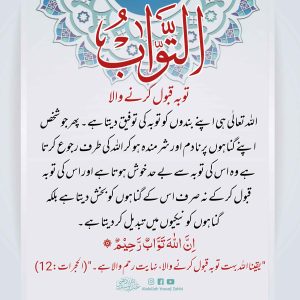 التَّوَّابُ
توبہ قبول کرنے والا
اللہ تعالٰی ہی اپنے بندوں کو توبہ کی توفیق دیتا ہے۔ پھر جو شخص
اپنے گناہوں پر نادم اور شرمندہ ہو کر اللہ کی طرف رجوع کرتا
ہے وہ اس کی توبہ سے بے حد خوش ہوتا ہے اور اس کی توبہ
قبول کر کے نہ صرف اس کے گناہوں کو بخش دیتا ہے بلکہ
گناہوں کو نیکیوں میں تبدیل کر دیتا ہے۔
اِنَّ اللّٰهَ تَوَّابٌ رَّحِیْمٌ
"یقینا اللہ بہت توبہ قبول کرنے والا، نہایت رحم والا ہے۔" (الحجرات: 12)